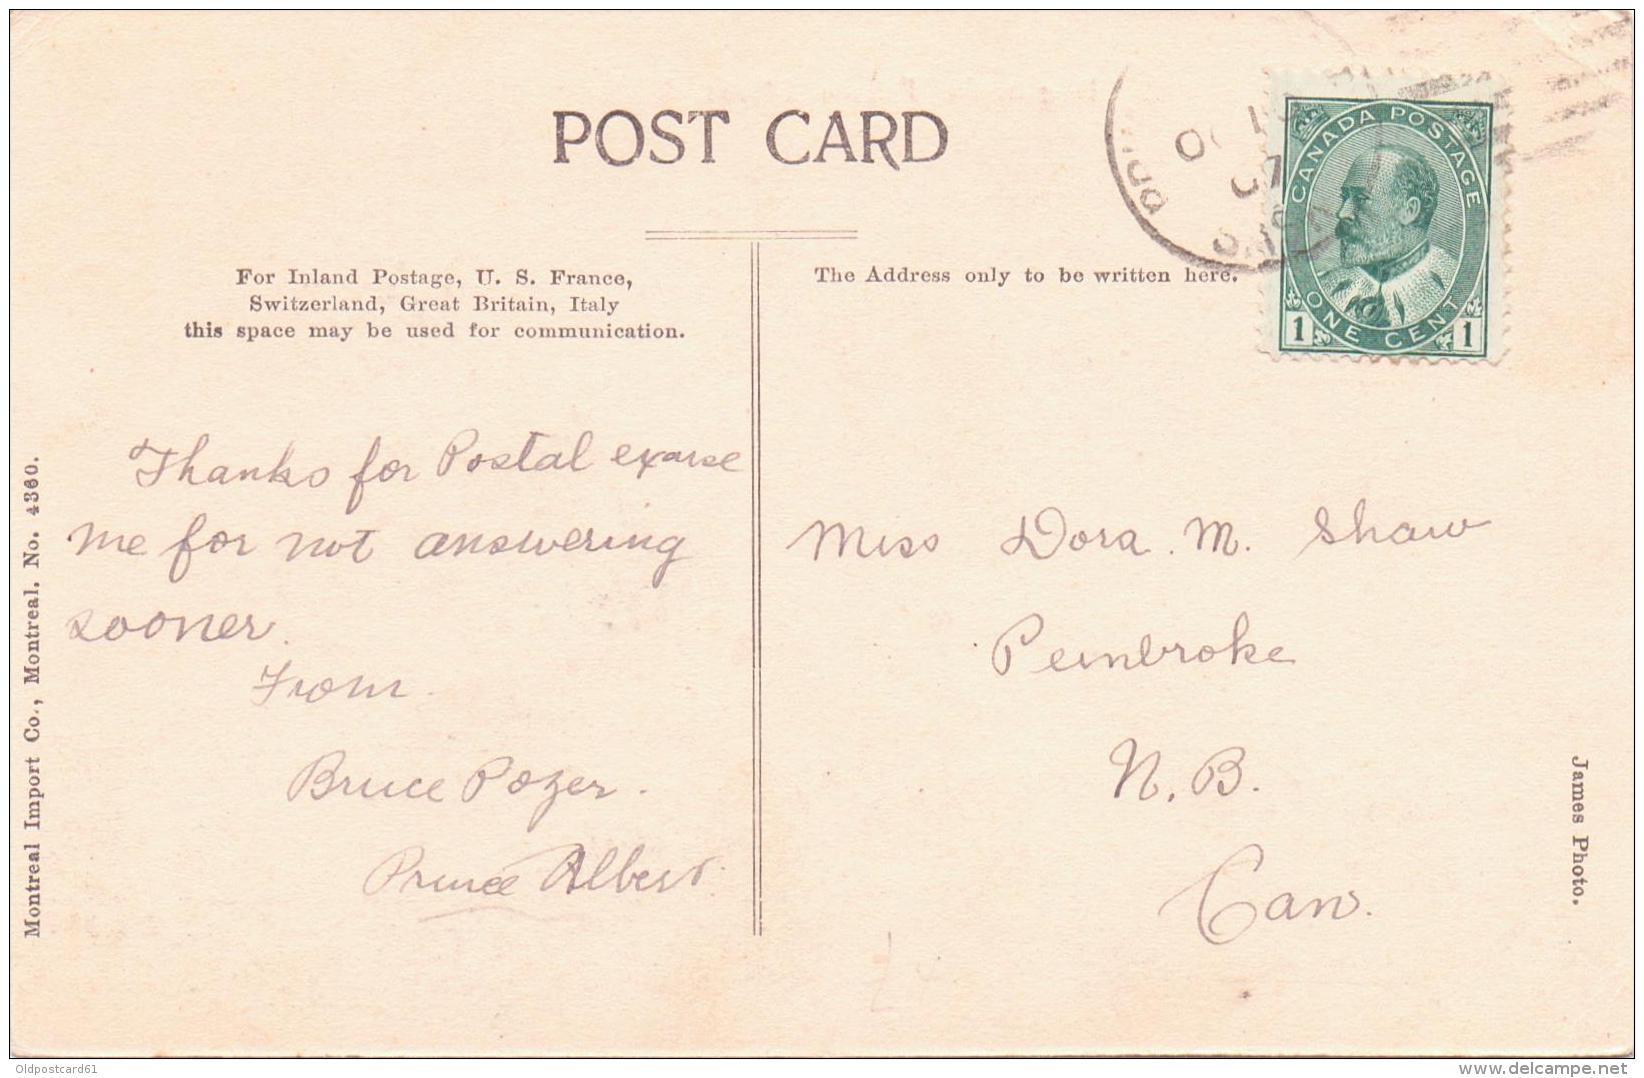 POST CARD
CANADA POSTAGE
ONE CENT
1 1
For Inland Postage, U. S. France,
Switzerland, Great Britain, Italy
this space may be used for communication.
The Address only to be written here.
Thanks for Postal exause
me for not answering
sooner.
From.
Bruce Pozer.
Prince Albert.
Miss Dora. M. Shaw
Pembroke
N. B.
Can.
Montreal Import Co., Montreal. No. 4360.
James Photo.
Oldpostcard61
delcampe.net